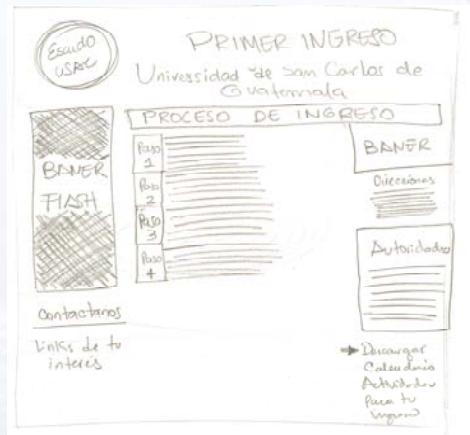 Escudo
USAC
PRIMER INGRESO
Universidad de San Carlos de
Guatemala
PROCESO DE INGRESO
BANER
FLASH
Paso
1
Paso
2
Paso
3
Paso
4
BANER
Direcciones
Autoridades
Contactanos
Links de tu
interés
Descargar
Calendario
Actividades
Para tu
ingreso